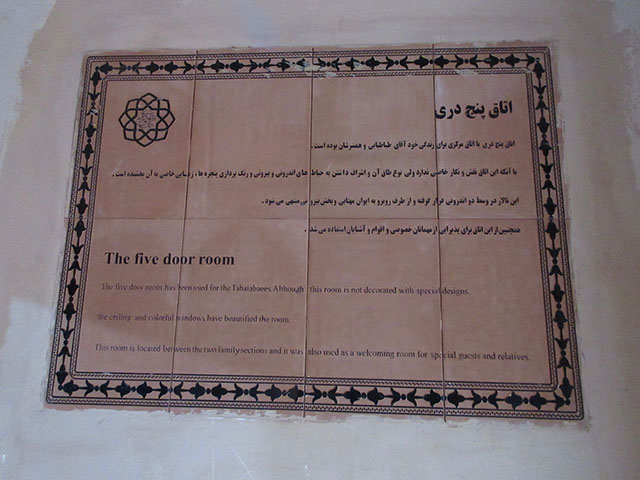 اتاق پنج دری
اتاق پنج دری یا اتاق مرکزی برای زندگی خود آقای طباطبایی و همسرشان بوده است .
با آنکه این اتاق نقش و نگار خاصی ندارد ولی نوع طاق آن و اشراف داشتن به حیاط های اندرونی و بیرونی و رنگ پردازی پنجره ها ، زیبایی خاصی به آن بخشیده است .
این تالار در وسط دو اندرونی قرار گرفته و از طرف روبرو به ایوان مهتابی و بخش بیرونی منتهی می شود .
همچنین از این اتاق برای پذیرایی از مهمانان خصوصی و اقوام و آشنایان استفاده می شد .
The five door room
The five door room has been used for the Tabatabaees. Although this room is not decorated with special designs.
the ceiling and colorful windows have beautified the room.
This room is located between the two family sections and it was also used as a welcoming room for special guests and relatives.